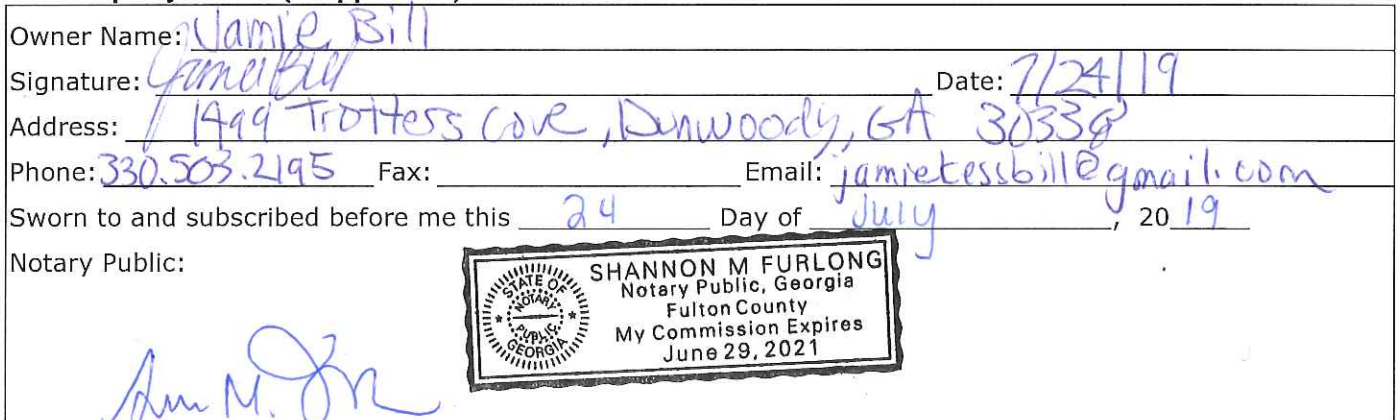 Owner Name: Jamie Bill
Signature: Jamie Bill Date: 7/24/19
Address: 1499 Trotters Cove, Dunwoody, GA 30338
Phone: 330.503.2195 Fax: Email: jamietessbill@gmail.com
Sworn to and subscribed before me this 24 Day of July, 20 19
Notary Public:
STATE OF GEORGIA
NOTARY PUBLIC
SHANNON M FURLONG
Notary Public, Georgia
Fulton County
My Commission Expires
June 29, 2021